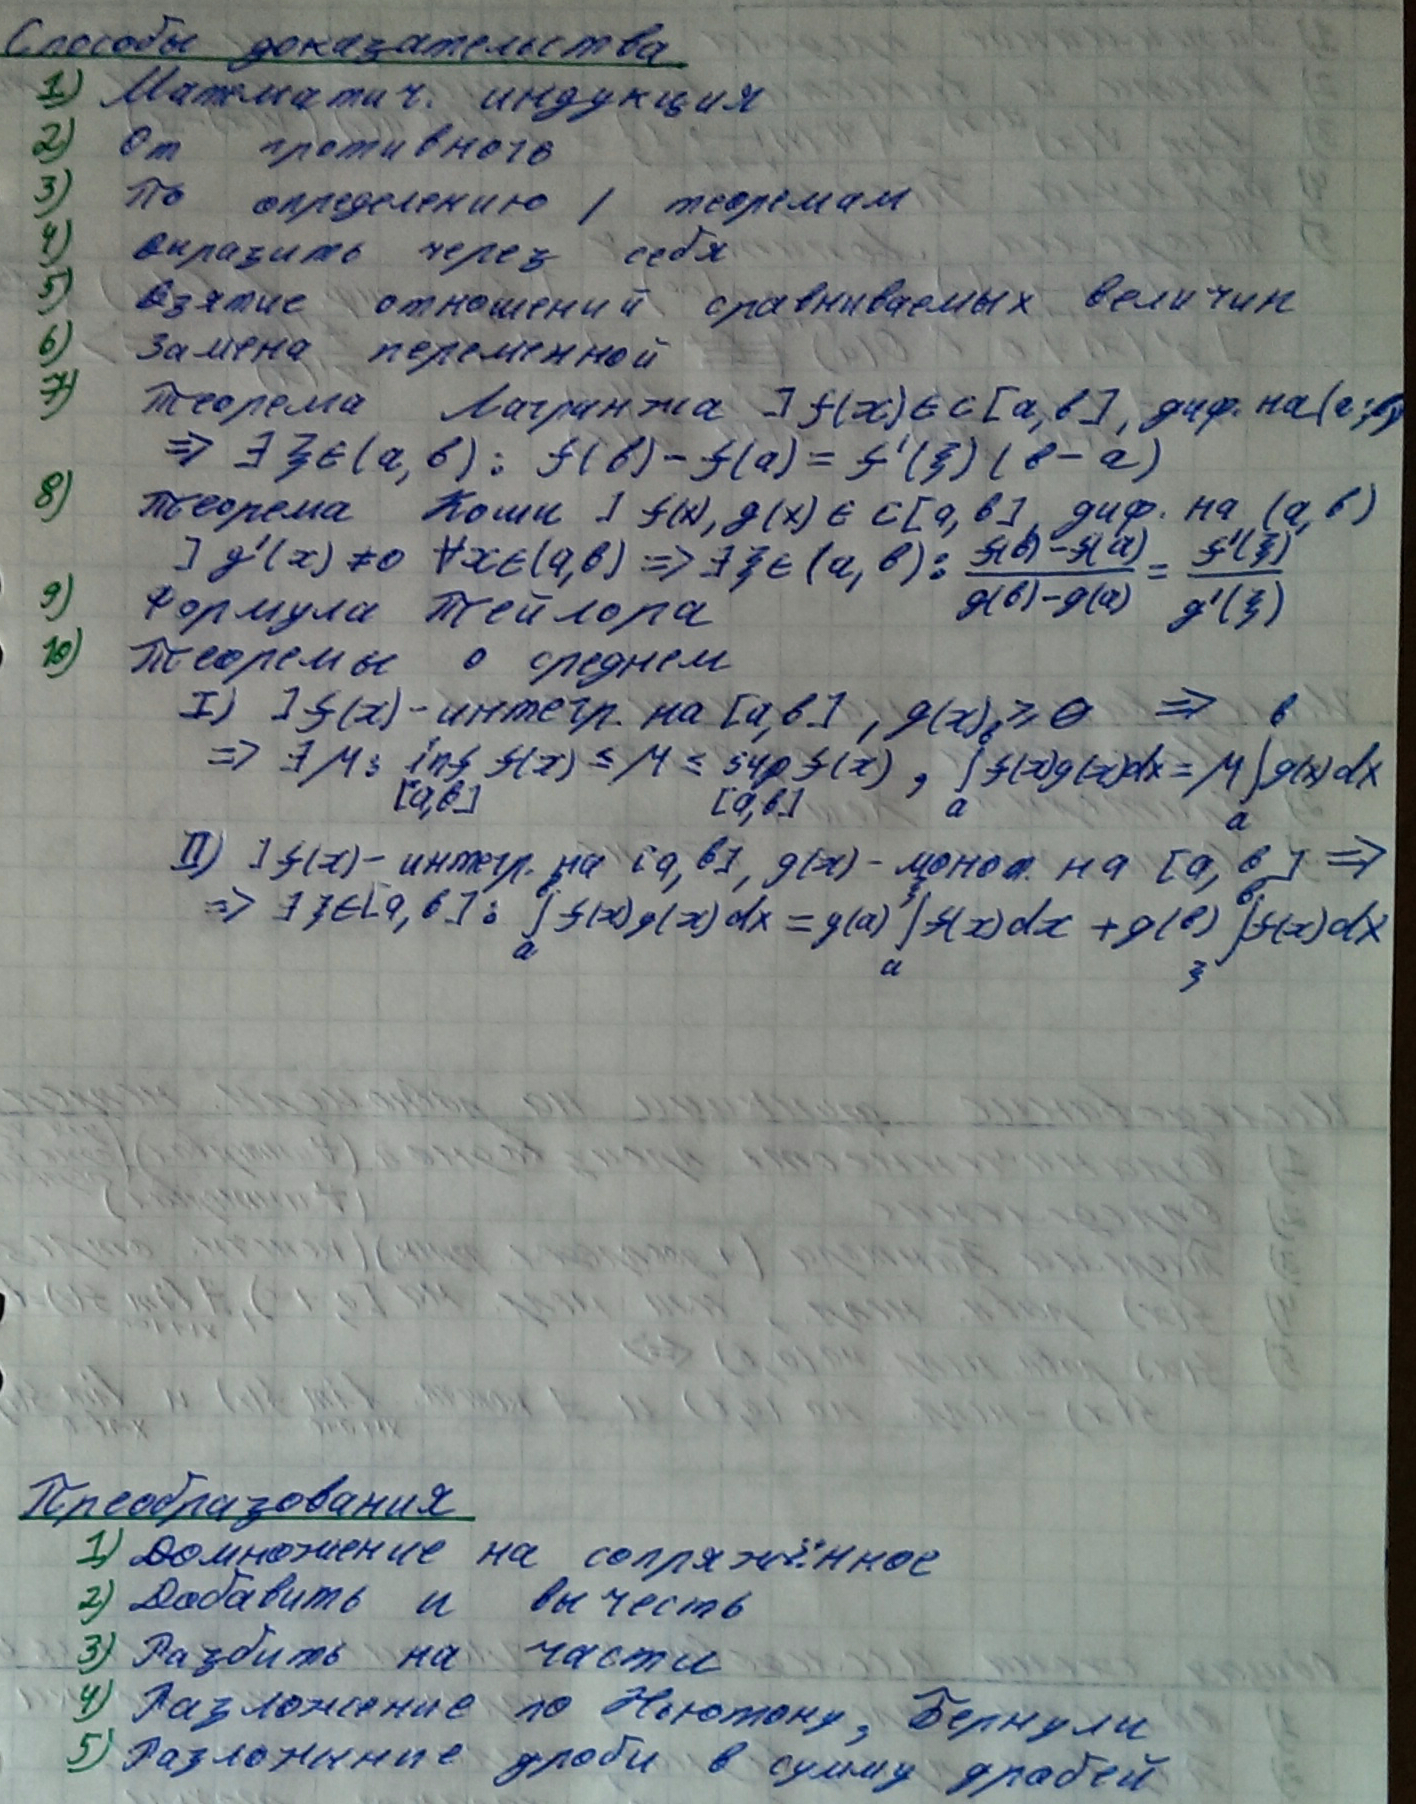 Способы доказательства
1) Математич. индукция
2) От противного
3) По определению / теоремам
4) Выразить через себя
5) Взятие отношений сравниваемых величин
6) Замена переменной
7) Теорема Лагранжа ] f(x) ∈ C[a,b], диф. на (a;b)
=> ∃ ξ ∈ (a,b): f(b) - f(a) = f'(ξ)(b-a)
8) Теорема Коши ] f(x), g(x) ∈ C[a,b], диф. на (a,b)
] g'(x) ≠ 0 ∀x ∈ (a,b) => ∃ ξ ∈ (a,b): (f(b)-f(a))/(g(b)-g(a)) = f'(ξ)/g'(ξ)
9) Формула Тейлора
10) Теоремы о среднем
I) ] f(x) - интегр. на [a,b], g(x) ≥ 0 =>
=> ∃ M: inf_[a,b] f(x) ≤ M ≤ sup_[a,b] f(x), ∫_a^b f(x)g(x)dx = M ∫_a^b g(x)dx
II) ] f(x) - интегр. на [a,b], g(x) - монот. на [a,b] =>
=> ∃ ξ ∈ [a,b]: ∫_a^b f(x)g(x)dx = g(a) ∫_a^ξ f(x)dx + g(b) ∫_ξ^b f(x)dx
Преобразования
1) Домножение на сопряжённое
2) Добавить и вычесть
3) Разбить на части
4) Разложение по Ньютону, Бернули
5) Разложение дроби в сумму дробей